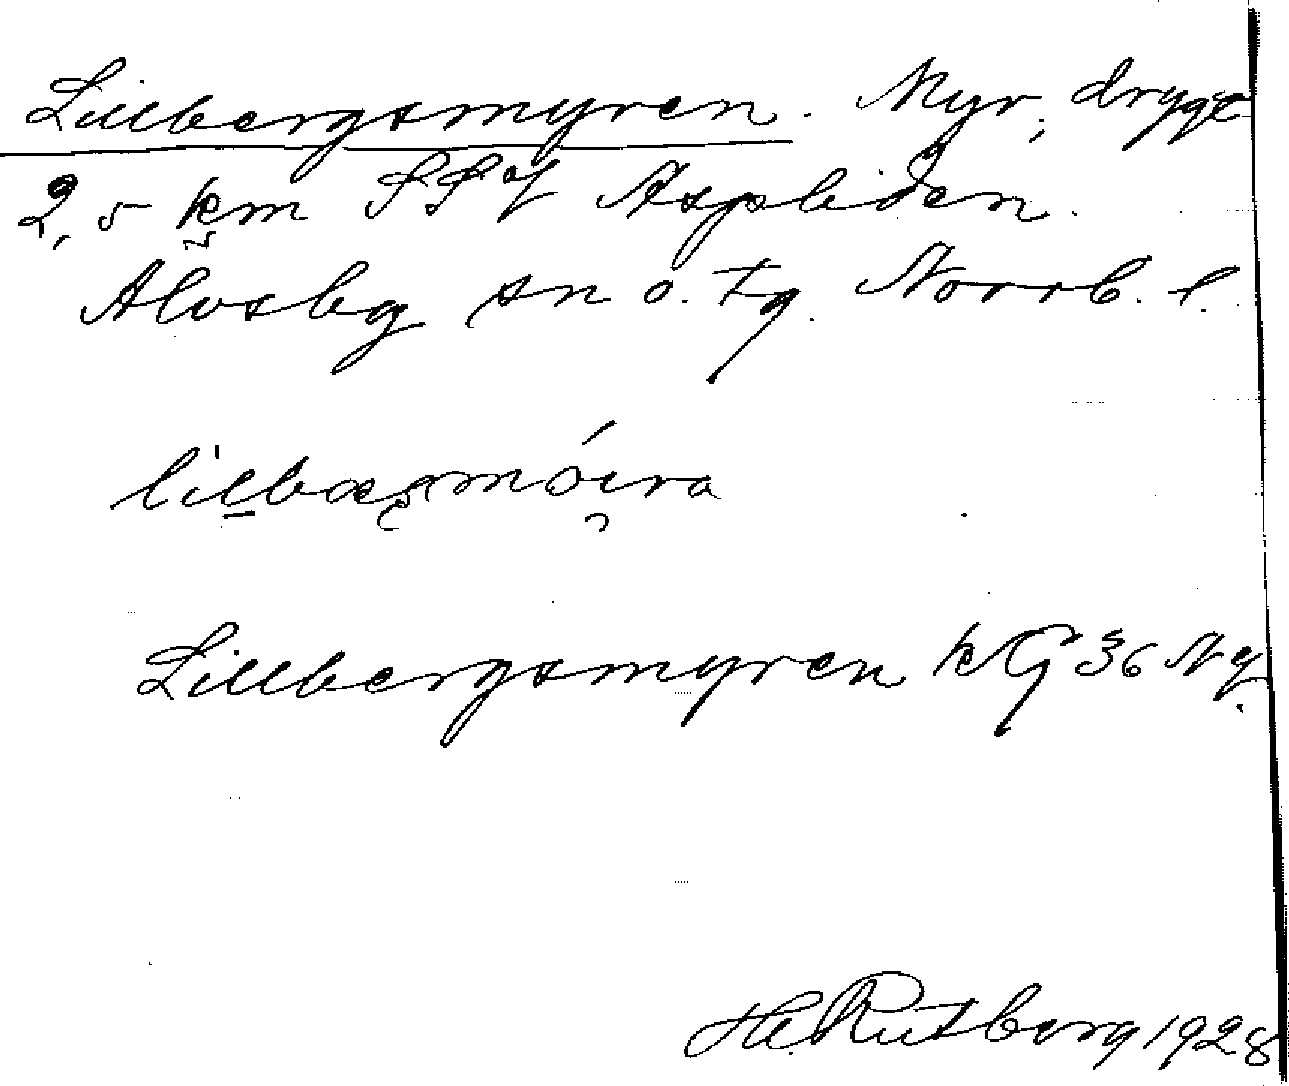 Lillbergsmyren. Myr, drygt
2,5 km SSV Aspliden.
Älvsby sn o. tg. Norrb. l.
Lillbergsmyren kG 36 Ny
He. Rutberg 1928